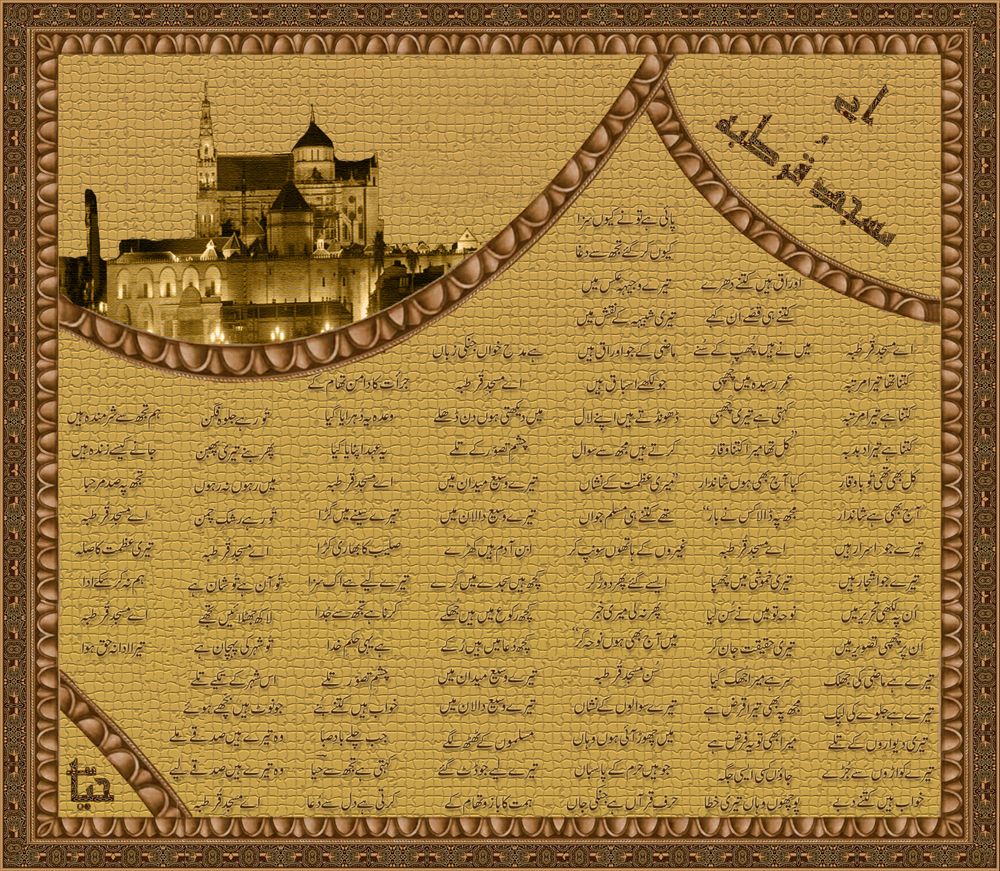 اے
مسجدِ قُرطبہ
اے مسجدِ قُرطبہ
کتنا تھا تیرا مرتبہ
کتنا ہے تیرا مرتبہ
کتنا ہے تیرا دبدبہ
کل بھی تھی تُو باوقار
آج بھی ہے شاندار
تیرے جو اسرار ہیں
تیرے جو اشجار ہیں
اُن پہ لکھی تحریر میں
اُن پر چھپی تصویر میں
تیرے ہے ماضی کی جھلک
تیرے ہے جلوے کی لپک
تیری دیواروں کے تلے
تیرے کواڑوں سے جُڑے
خواب ہیں کتنے دبے
اوراق ہیں کتنے دھرے
کتنے ہی قصے اَن کہے
میں نے ہیں چُھپ کے سُنے
عمر رسیدہ میں چھپی
کہتی ہے تیری چھپی
"کل تھا میرا کتنا وقار
کیا آج بھی ہوں شاندار
مجھ پہ ڈالا کس نے بار"
اے مسجدِ قُرطبہ
تیری خموشی میں چُھپا
نوحہ تو میں نے سُن لیا
تیری حقیقت جان کر
سر ہے میرا جھک گیا
مجھ پہ بھی تیرا قرض ہے
میرا بھی تو یہ فرض ہے
جاؤں گی ایسی جگہ
پوچھوں وہاں تیری خطا
پائی ہے تو نے کیوں سزا
کیوں کر گئے تجھ سے دغا
تیرے وجیہہ عکس میں
تیری شبیہہ کے نقش میں
ماضی کے جو اوراق ہیں
جو لکھے اسباق ہیں
ڈھونڈتے ہیں اپنے لال
کرتے ہیں مجھ سے سوال
"میری عظمت کے نشاں
تھے کتنے ہی مسلم جواں
غیروں کے ہاتھوں سونپ کر
ایسے گئے پھر دوڑ کر
پھر نہ لی میری خبر
میں آج بھی ہوں نوحہ گر"
سن مسجدِ قُرطبہ
تیرے سوالوں کے نشاں
میں چھوڑ آئی ہوں وہاں
جو ہیں حرم کے پاسباں
حرفِ قرآں ہے جنکی جاں
ہے مدح خواں جنکی زباں
اے مسجدِ قُرطبہ
میں دیکھتی ہوں دن ڈھلے
چشمِ تصوّر کے تلے
تیرے وسیع میدان میں
تیرے وسیع دالان میں
ابنِ آدم ہیں کھڑے
کچھ ہیں سجدے میں گرے
کچھ رکوع میں ہیں جھکے
کچھ دُعا میں ہیں رُکے
تیرے وسیع میدان میں
تیرے وسیع دالان میں
مسلموں کے کٹھ لگے
تیرے لیے جو ڈٹ گئے
ہمت کا بازو تھام کے
جرأت کا دامن تھام کے
وعدہ یہ دُہرایا گیا
یہ عہد اپنایا گیا
اے مسجدِ قُرطبہ
تیرے سینے میں گڑا
صلیب کا بھاری کڑا
تیرے لیے ہے اک سزا
کرنا ہے تجھ سے جدا
ہے یہی حکمِ خدا
چشمِ تصوّر تلے
خواب ہیں کتنے بُنے
جب چلے بادِ صبا
کہتی ہے تجھ سے حیّا
کرتی ہے دل سے دُعا
تُو رہے جلوہ فگن
پھر بنے تیری پھبن
میں رہوں نہ رہوں
تُو رہے رشکِ چمن
اے مسجدِ قُرطبہ
تُو آن ہے تُو شان ہے
لاکھ جھٹلائیں تجھے
تُو شہر کی پہچان ہے
اس شہر کے تکیے تلے
جو نوٹ ہیں بچھے ہوئے
وہ تیرے ہیں صدقے ملے
وہ تیرے ہیں صدقے لیے
اے مسجدِ قُرطبہ
ہم تجھ سے شرمندہ ہیں
جانے کیسے زندہ ہیں
تجھ پہ صد مرحبا
اے مسجدِ قُرطبہ
تیری عظمت کا صلہ
ہم نہ کر سکے ادا
اے مسجدِ قُرطبہ
تیرا ادا نہ حق ہوا
حیّا